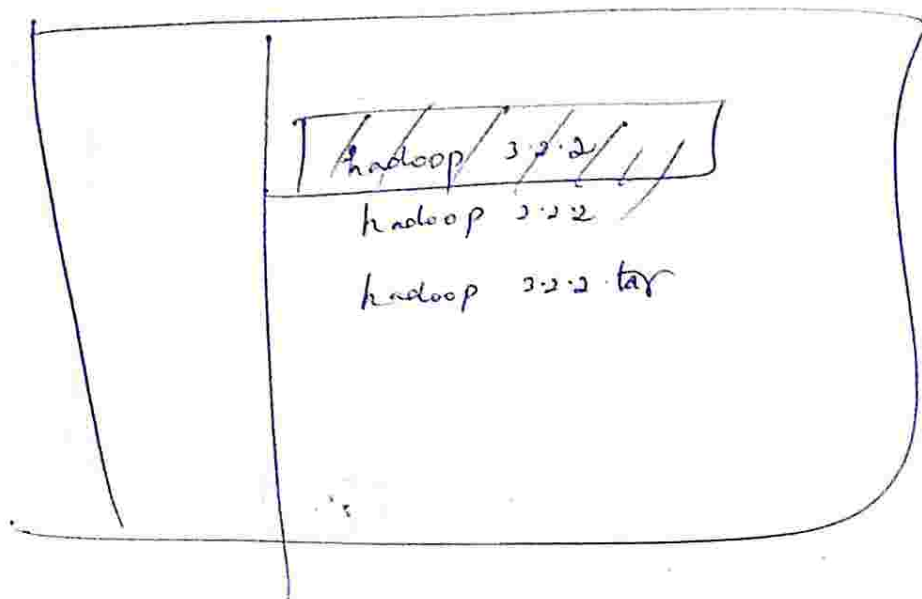 hadoop 3.2.2
hadoop 3.2.2
hadoop 3.2.2.tar